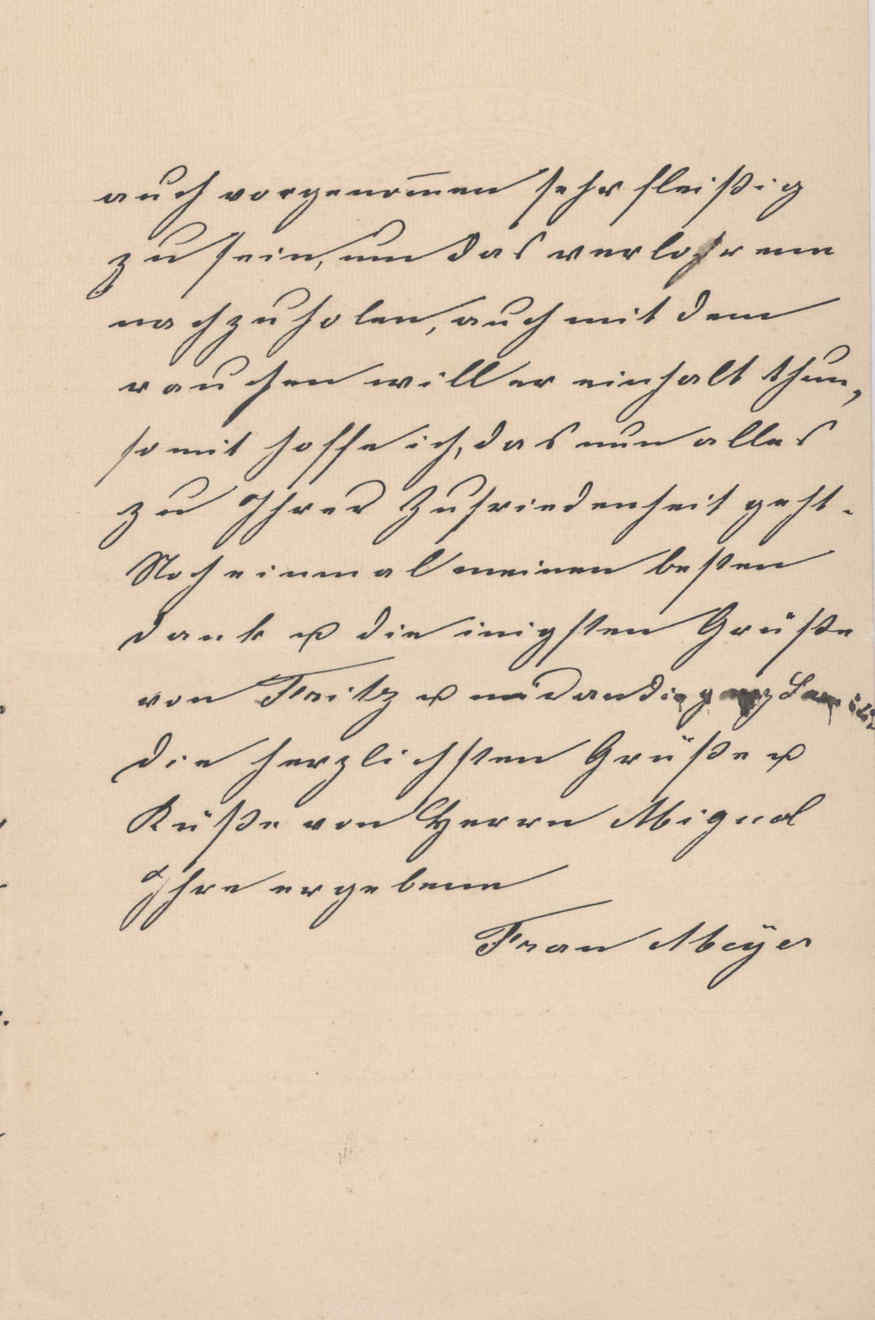 auch vorgenom̅en sehr fleißig
zu sein, um das verlohrene
nachzuholen, auch mit dem
rauchen will er einhalt thun,
somit hoffe ich, das nun alles
zu Ihrer Zufriedenheit geht.
Noch einmal meinen besten
dank u die inigsten Grüße
von Fritz u an die ganze
die herzlichsten Grüße u
Küße von Herrn Mignol
Ihre ergebene
Frau Meÿer